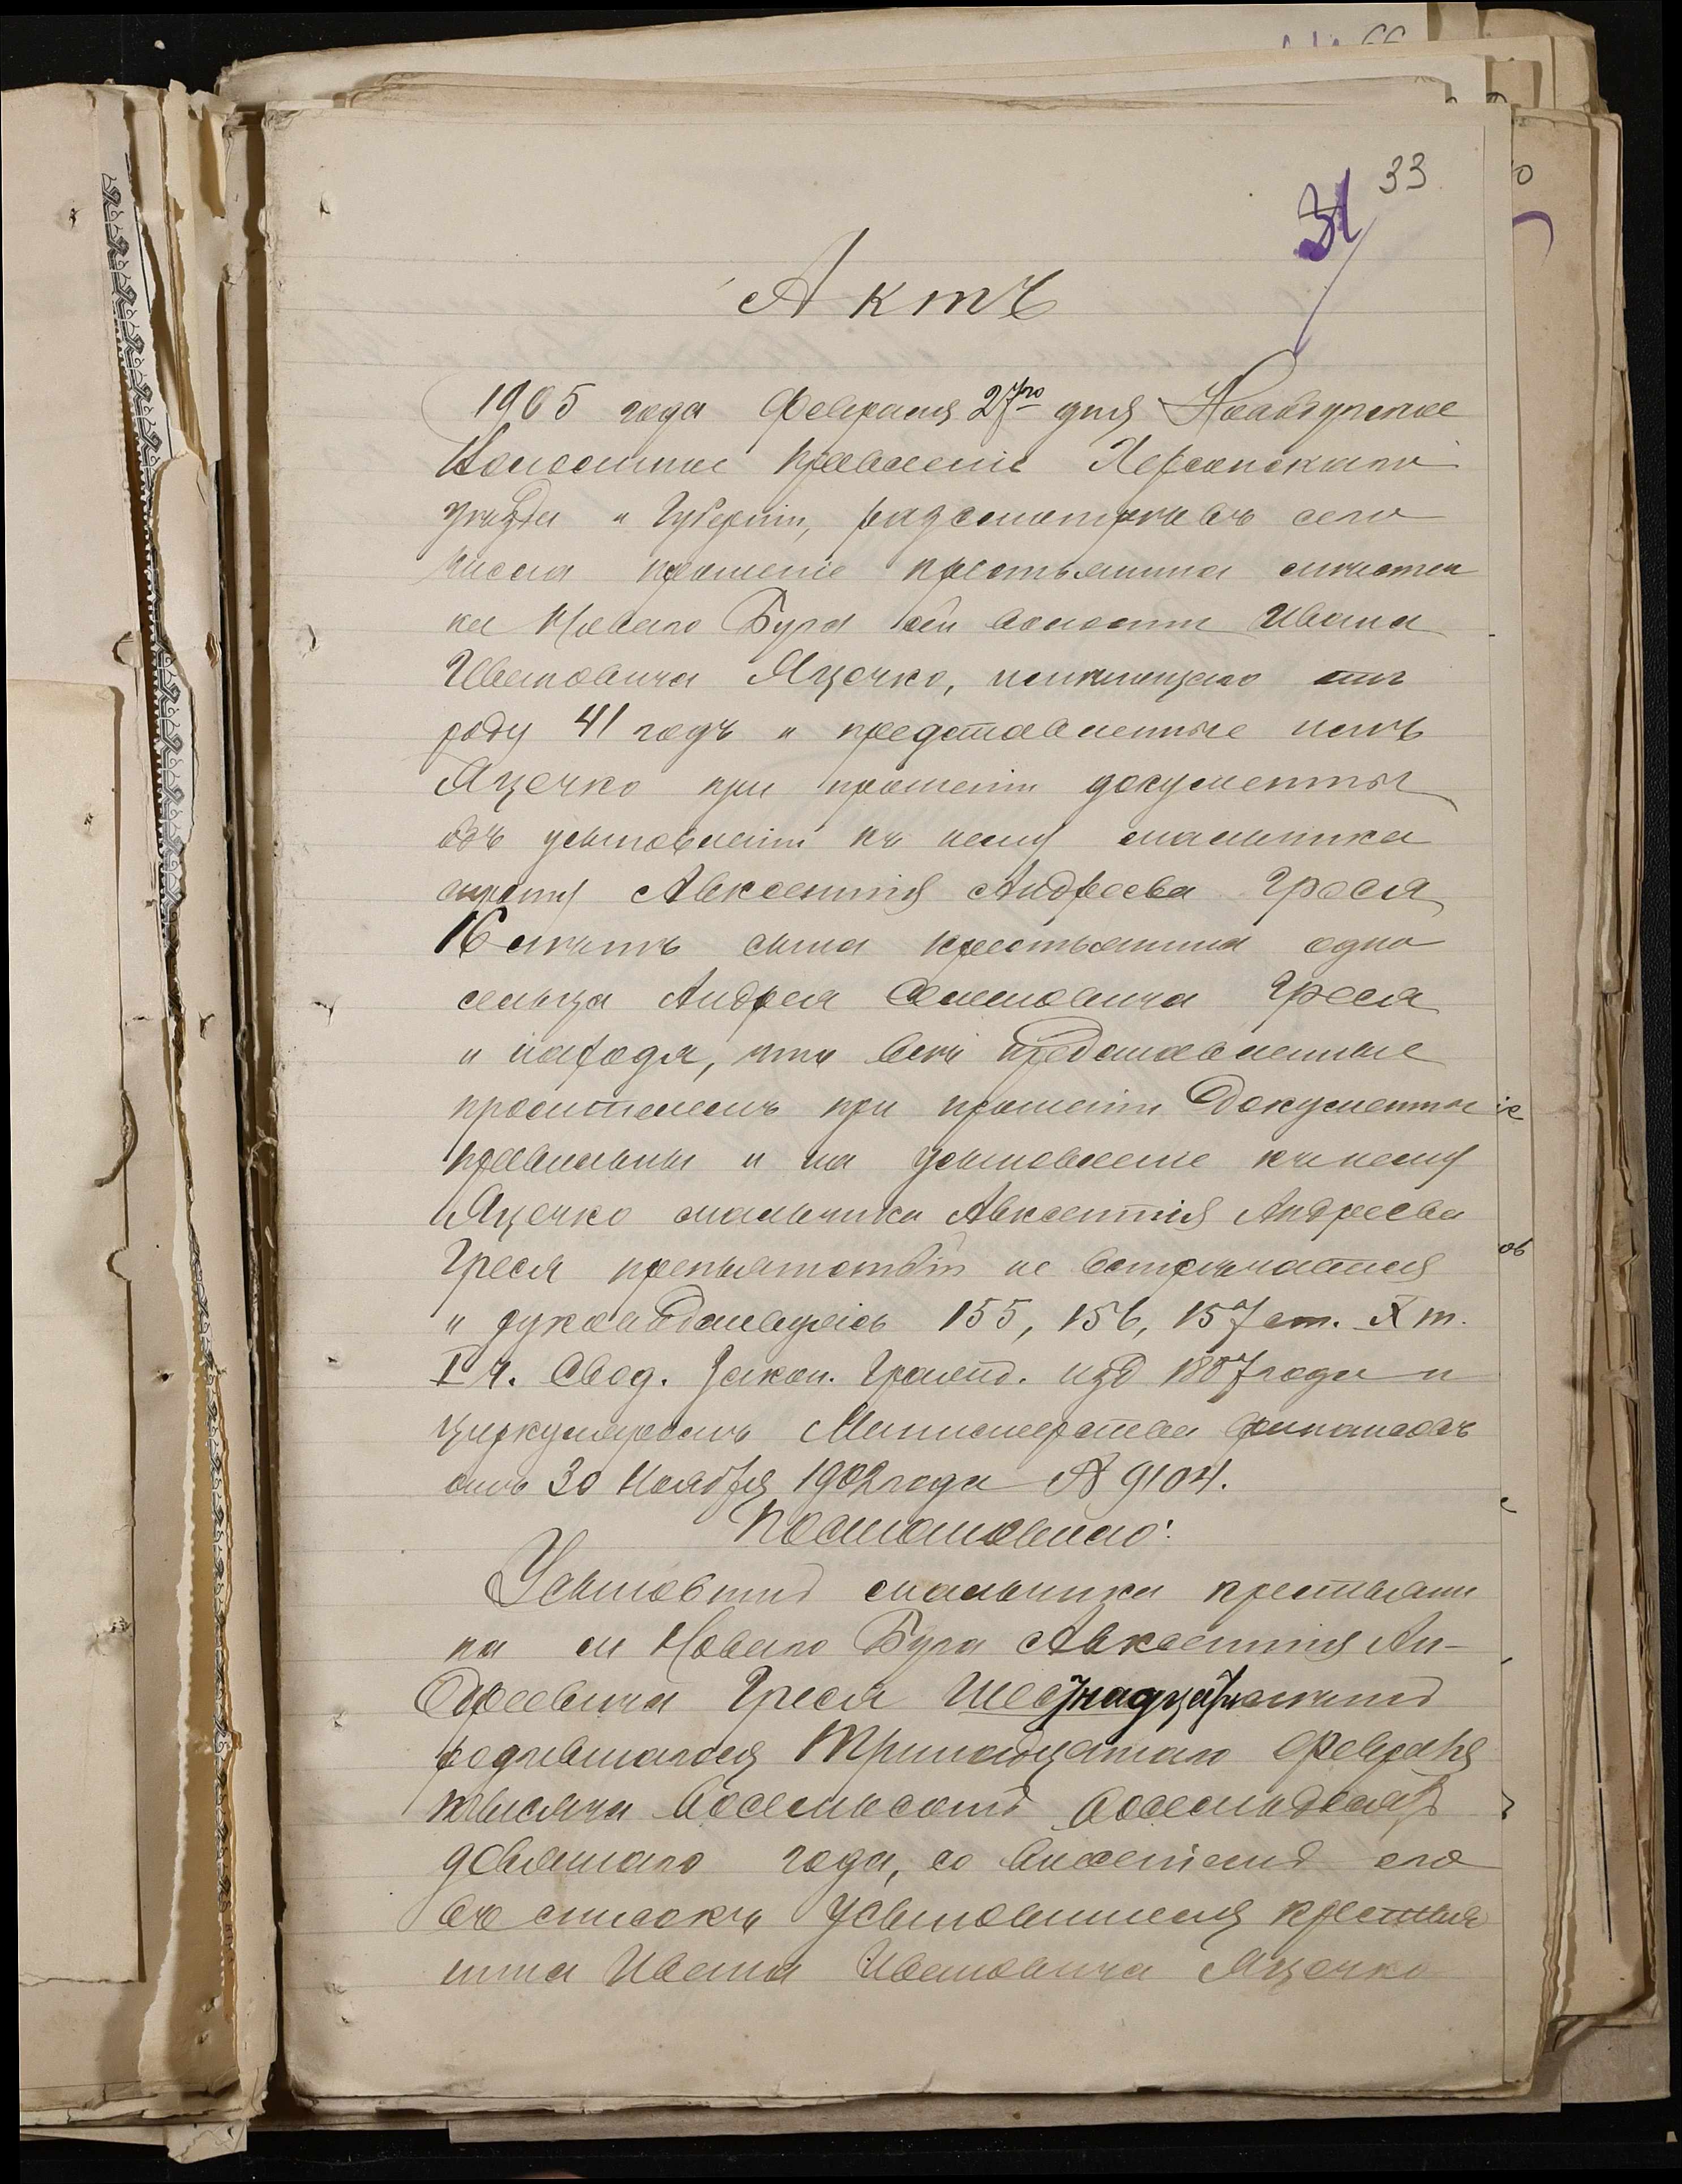 33
31
Актъ
1905 года Февраля 27го дня Новобугское
Волостное Правленіе Херсонскаго
уѣзда и Губерніи, разсмотрѣвъ сего
числа прошеніе крестьянина
ка Новаго Буга сей волости Ивана
Ивановича Яцечко, имѣющаго отъ
роду 41 годъ и представленные имъ
Яцечко при прошеніи документы
объ усыновленіи къ нему мальчика
сироту Авксентія Андреева Греся
16 лѣтъ сына крестьянина одно
сельца Андрея Семеновича Греся
и находя, что всѣ представленные
просителемъ при прошеніи документы
правильны и на усыновленіе къ нему
Яцечко мальчика Авксентія Андреева
Греся препятствій не встрѣчается
и руководствуясь 155, 156, 157 ст. X т.
I ч. Свод. Закон. Гражд. изд 1887 года и
циркуляромъ Министерства Финансовъ
отъ 30 Ноября 1902 года № 9104.
Постановило:
Усыновить мальчика крестьяни
на м Новаго Буга Авксентія Ан-
дреевича Греся Шестнадцати лѣтъ
родившагося Тринадцатаго Февраля
тысяча восемьсотъ восемьдесятъ
девятаго года, со внесеніемъ его
въ списокъ усыновившаго крестья
нина Ивана Ивановича Яцечко